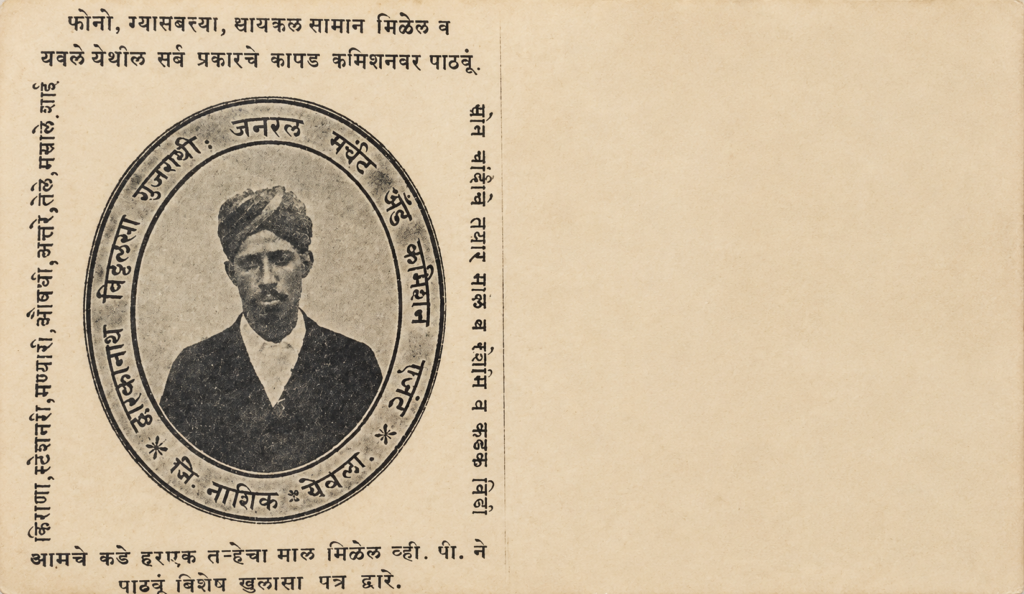 फोनो, ग्यासबत्त्या, सायकल सामान मिळेल व
यवले येथील सर्व प्रकारचे कापड कमिशनवर पाठवूं.
किराणा, स्टेशनरी, मण्यारी, औषधी, अत्तरे, तेले, मसाले, शाई
द्वारकानाथ विठ्ठलसा गुजराथी; जनरल मर्चंट अँड कमिशन एजंट
जि. नाशिक येवला.
सोन चांदीचे तयार माल व रेशमि व कडक विडी
आमचे कडे हरएक तऱ्हेचा माल मिळेल व्ही. पी. ने
पाठवूं विशेष खुलासा पत्र द्वारे.